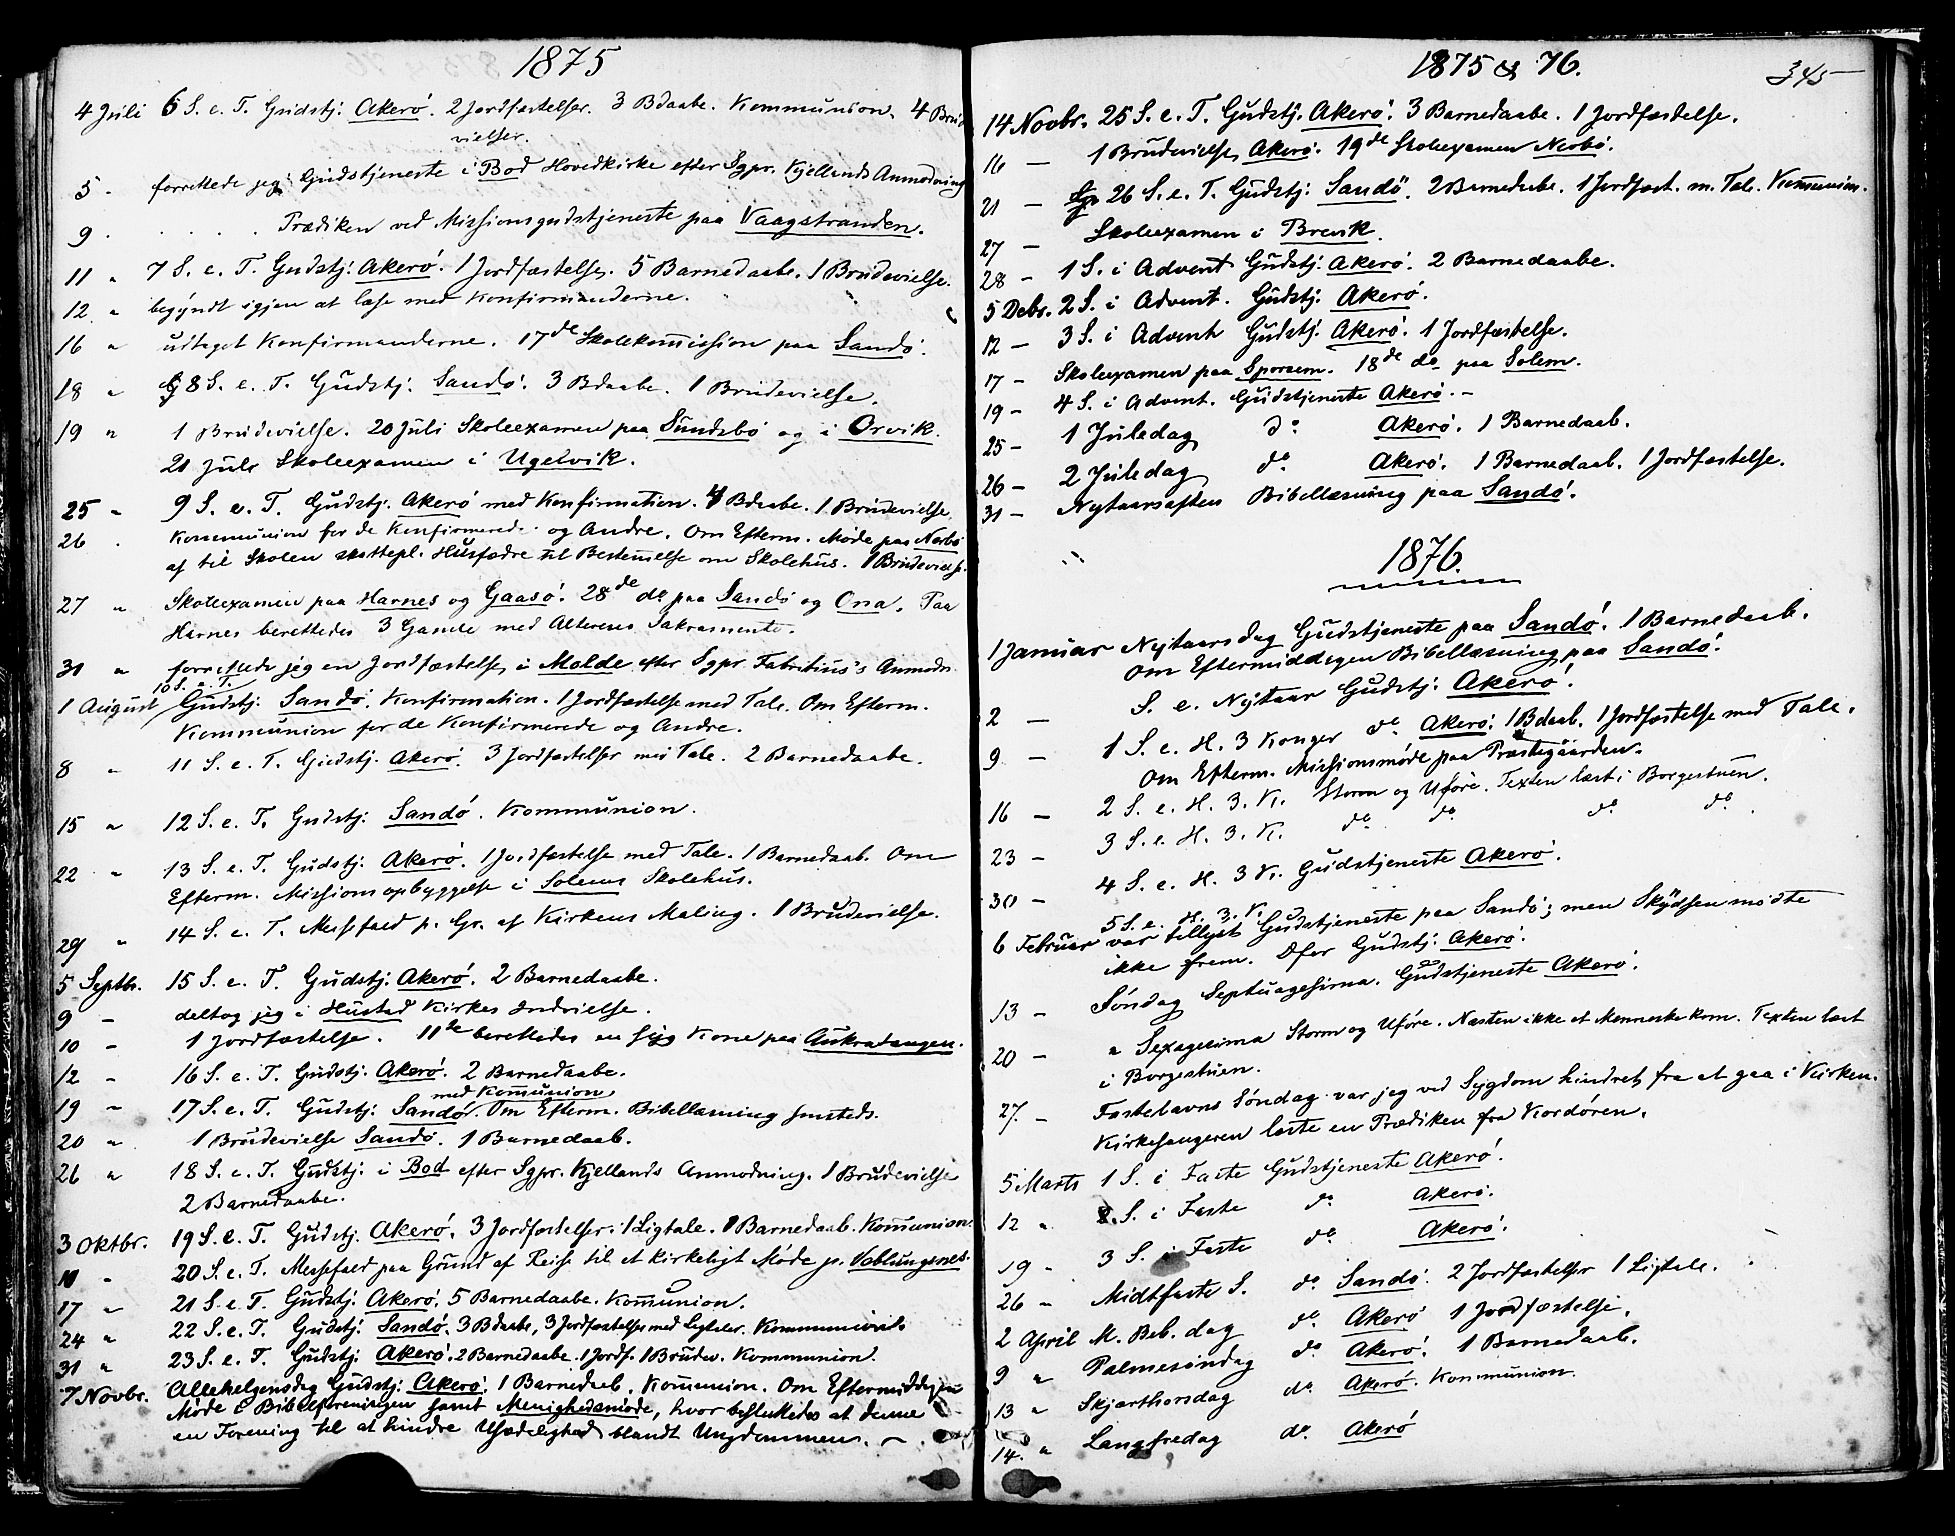 1875
4 Juli 6 S. e. T. Gudstj. Akerö. 2 Jordfæstelser. 3 Bdaabe. Kommunion. 4 Brud
vielser.
5 . forrettede jeg Gudstjeneste i Bod Hovedkirke efter Sgpr. Kjellands Anmodning
9 . . . . . Prædiken ved Missionsgudstjeneste paa Vaagstranden.
11 " 7 S. e. T. Gudstj. Akerö. 1 Jordfæstelse. 5 Barnedaabe. 1 Brudevielse.
12 " begyndt igjen at læse med Konfirmanderne.
16 " udtaget Konfirmanderne. 17de Skolekommission paa Sandö.
18 " 8 S. e. T. Gudstj. Sandö. 3 Bdaabe. 1 Brudevielse.
19 " 1 Brudevielse. 20 Juli Skoleexamen paa Sundsbö og i Orvik.
21 Juli Skoleexamen i Ugelvik.
25 " 9 S. e. T. Gudstj. Akerö med Konfirmation. 4 Bdaabe. 1 Brudevielse
26 . Kommunion for de Konfirmerede og Andre. Om Efterm. Möde paa Nerbö
af til Skolen skattepl. Husfædre til Bestemelse om Skolehus. 1 Brudevielse.
27 " Skoleexamen paa Harnes og Gaasö. 28de do paa Sandö og Ona. Paa
Harnes berettedes 3 Gamle med Alterens Sakramente.
31 " forrettede jeg en Jordfæstelse i Molde efter Sgpr. Fabritius's Anmodn.
10 S. e. T.
1 August Gudstj. Sandö. Konfirmation. 1 Jordfæstelse med Tale. Om Efterm.
Kommunion for de Konfirmerede og Andre.
8 " 11 S. e. T. Gudstj. Akerö. 3 Jordfæstelser med Tale. 2 Barnedaabe.
15 " 12 S. e. T. Gudstj. Sandö. Kommunion.
22 " 13 S. e. T. Gudstj. Akerö. 1 Jordfæstelse med Tale. 1 Barnedaab. Om
Efterm. Missionsopbyggelse i Solems Skolehus.
29 " 14 S. e. T. Messefald p. Gr. af Kirkens Maling. 1 Brudevielse.
5 Septbr. 15 S. e. T. Gudstj. Akerö. 2 Barnedaabe.
9 - deltog jeg i Hustad Kirkes Indvielse.
10 - 1 Jordfæstelse. 11te berettedes en syg Kone paa Aukradangen.
12 - 16 S. e. T. Gudstj. Akerö. 2 Barnedaabe.
med Kommunion
19 - 17 S. e. T. Gudstj. Sandö. Om Efterm. Bibellæsning smsteds.
20 " 1 Brudevielse Sandö. 1 Barnedaab.
26 " 18 S. e. T. Gudstj. i Bod efter Sgpr. Kjellands Anmodning. 1 Brudevielse
2 Barnedaabe.
3 Oktbr. 19 S. e. T. Gudstj. Akerö. 3 Jordfæstelser. 1 Ligtale. 1 Barnedaab. Kommunion.
10 " 20 S. e. T. Messefald paa Grund af Reise til et kirkeligt Möde p. Veblungsnes.
17 " 21 S. e. T. Gudstj. Akerö. 5 Barnedaabe. Kommunion.
24 " 22 S. e. T. Gudstj. Sandö. 3 Bdaabe, 3 Jordfæstelser med Ligtaler. Kommunion.
31 " 23 S. e. T. Gudstj. Akerö. 2 Barnedaabe. 1 Jordf. 1 Brudev. Kommunion.
7 Novbr. Allehelgensdag Gudstj. Akerö. 1 Barnedaab. Kommunion. Om Eftermiddagen
Möde i Bibelforeningen samt Menighedsmöde, hvor besluttedes at danne
en Forening til at hindre Usædelighed blandt Ungdommen.
1875 & 76.
345
14 Novbr. 25 S. e. T. Gudstj. Akerö. 3 Barnedaabe. 1 Jordfæstelse.
16 — 1 Brudevielse, Akerö. 19de Skoleexamen Nerbö.
21 — 26 S. e. T. Gudstj. Sandö. 2 Barnedaabe. 1 Jordfæst. m. Tale. Kommunion.
27 — Skoleexamen i Breivik.
28 — 1 S. i Advent Gudstj. Akerö. 2 Barnedaabe.
5 Debr. 2 S. i Advent. Gudstj. Akerö.
12 — 3 S. i Advent Gudstj. Akerö. 1 Jordfæstelse.
17 - Skoleexamen paa Sporsem. 18de do paa Solem.
19 - 4 S. i Advent. Gudstjeneste Akerö. -
25 - 1 Juledag do Akerö. 1 Barnedaab.
26 - 2 Juledag do Akerö. 1 Barnedaab. 1 Jordfæstelse.
31 - Nytaarsaften Bibellæsning paa Sandö.
1876.
1 Januar Nytaarsdag Gudstjeneste paa Sandö. 1 Barnedaab.
Om Eftermiddagen Bibellæsning paa Sandö.
2 — S. e. Nytaar Gudstj. Akerö.
9 — 1 S. e. H. 3 Konger do Akerö. 1 Bdaab. 1 Jordfæstelse med Tale.
Om Efterm. Missionsmöde paa Præstegaarden.
16 — 2 S. e. H. 3. K. Storm og Uföre. Texten læst i Borgestuen.
23 - 3 S. e. H. 3. K. do do do do
30 - 4 S. e. H. 3 K. Gudstjeneste Akerö.
5 S. e. H. 3. K.
6 Februar var tillyst Gudstjeneste paa Sandö; men Skydsen mödte
ikke frem. Dfor Gudstj. Akerö.
13 - Söndag Septuagesima. Gudstjeneste Akerö.
20 - " Sexagesima Storm og Uföre. Næsten ikke et Menneske kom. Texten læst
i Borgestuen.
27. - Fastelavns Söndag var jeg ved Sygdom hindret fra at gaa i Kirken.
Kirkesangeren læste en Prædiken fra Kordören.
5 Marts 1 S. i Faste Gudstjeneste Akerö.
12 " 2. S. i Faste do Akerö.
19 - 3 S. i Faste do Akerö.
26 - Midtfaste S. do Sandö. 2 Jordfæstelser 1 Ligtale.
2 April M. Beb. dag do Akerö 1 Jordfæstelse.
9 " Palmesöndag do Akerö. 1 Barnedaab.
13 " Skjærthorsdag do Akerö. Kommunion.
14. " Langfredag do Akerö